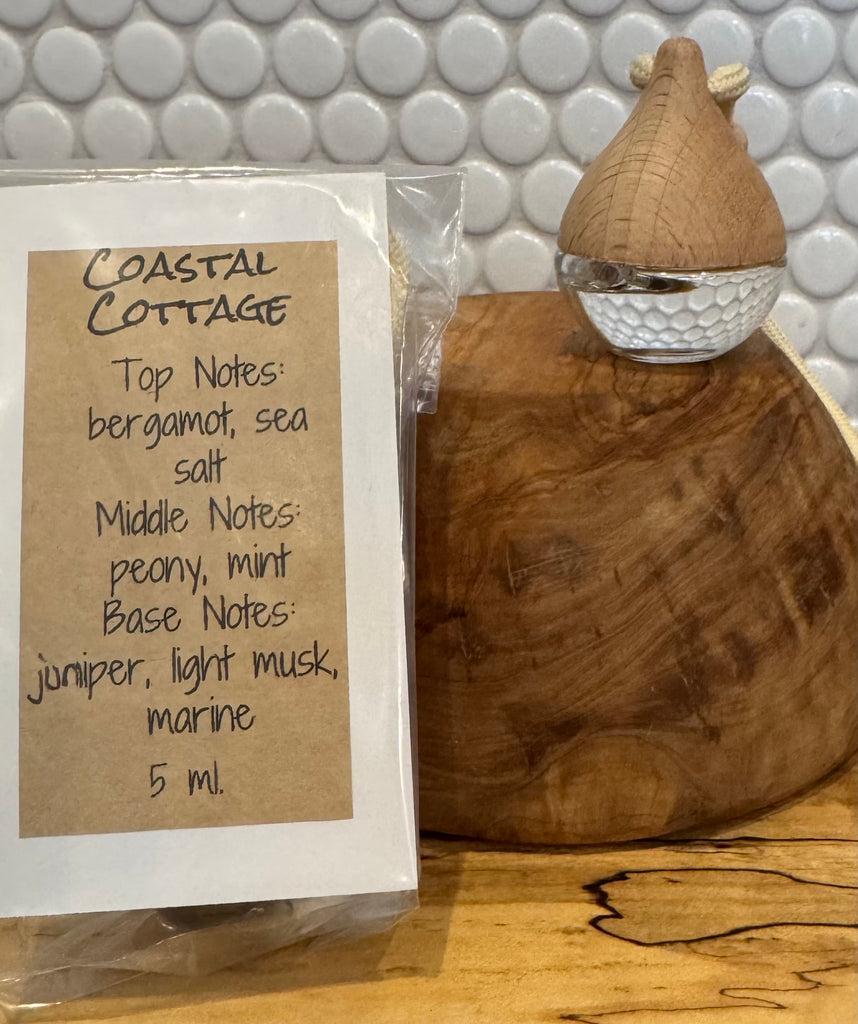 COASTAL
COTTAGE
Top Notes:
bergamot, sea
salt
Middle Notes:
peony, mint
Base Notes:
juniper, light musk,
marine
5 ml.